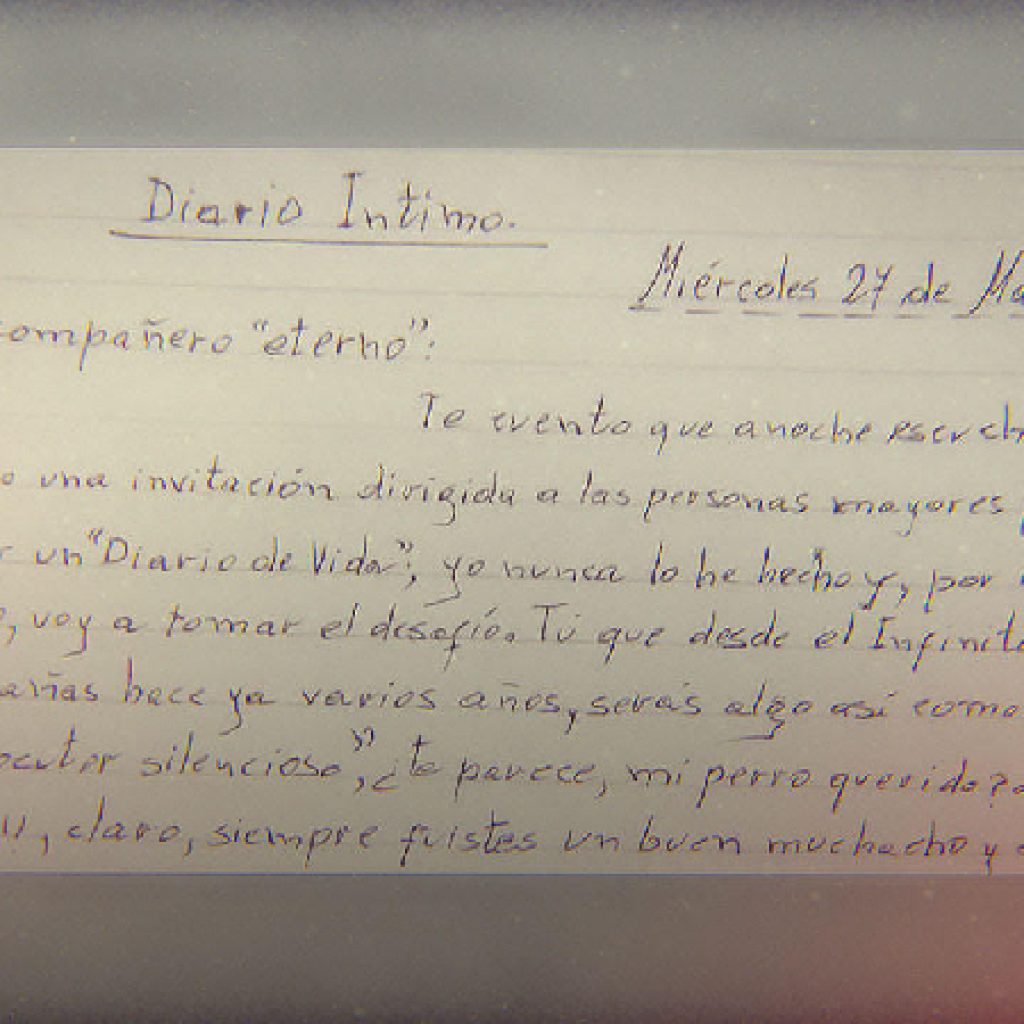 Diario Intimo.
Miércoles 27 de
compañero "eterno":
Te cuento que anoche
una invitación dirigida a las personas mayores
un "Diario de Vida", yo nunca lo he hecho y, por
voy a tomar el desafío. Tú que desde el Infinito
hace ya varios años, serás algo así como
silencioso", ¿te parece, mi perro querido?
claro, siempre fuistes un buen muchacho y